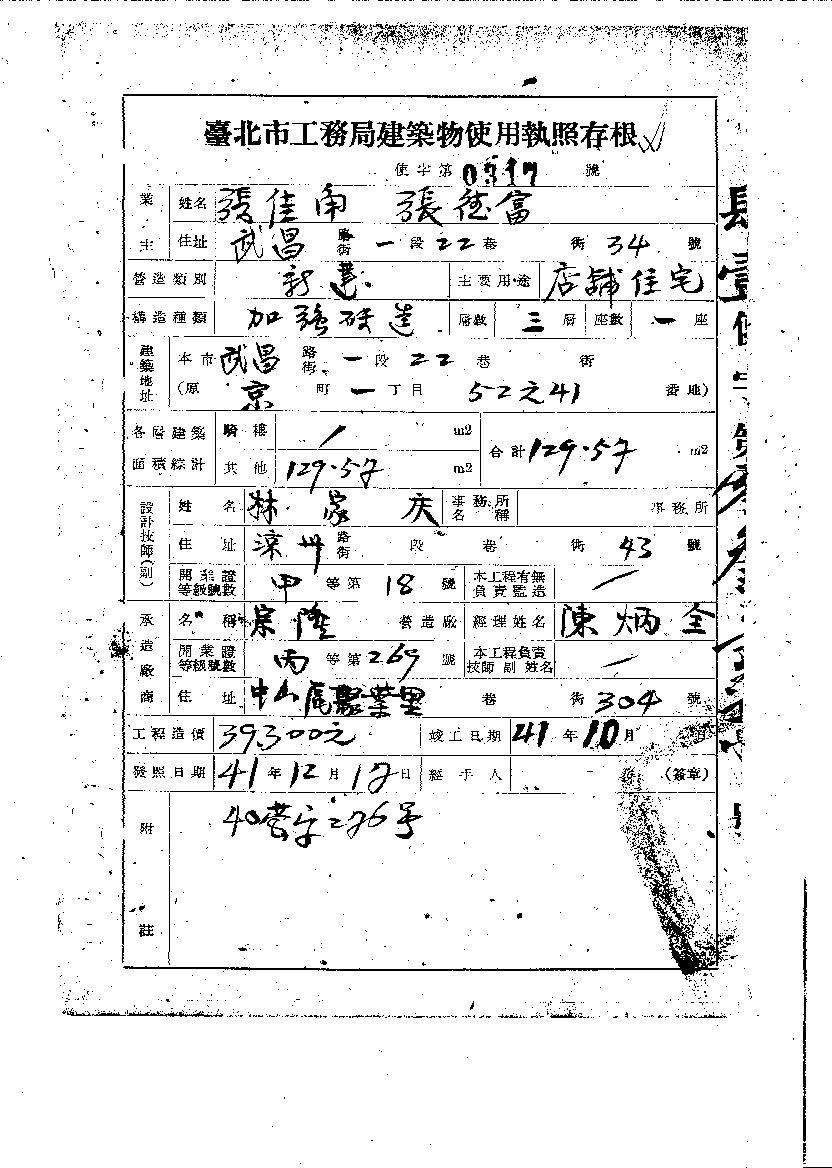 臺北市工務局建築物使用執照存根
使字第0517號
業主 姓名 張佳角 張德富
住址 武昌路街一段22巷 街34號
營造類別 新建 主要用途 店舖住宅
構造種類 加強磚造 層數 三層 座數 一座
建築地址 本市武昌路街一段22巷 街
(原 京町一丁目 52之41 番地)
各層建築面積綜計 騎樓 / m2 合計129.57 m2
其他 129.57 m2
設計技師(副) 姓名 林家庆 事務所名稱 事務所
住址 涼州路街 段 巷 街43號
開業證等級號數 甲等第18號 本工程有無負責監造 /
承造廠商 名稱 宗隆 營造廠 經理姓名 陳炳全
開業證等級號數 丙等第269號 本工程負責技師副姓名 /
住址 中山區聚業里 巷 街304號
工程造價 39,300元 竣工日期 41年10月
發照日期 41年12月17日 經手人 (簽章)
附註 40營字276号